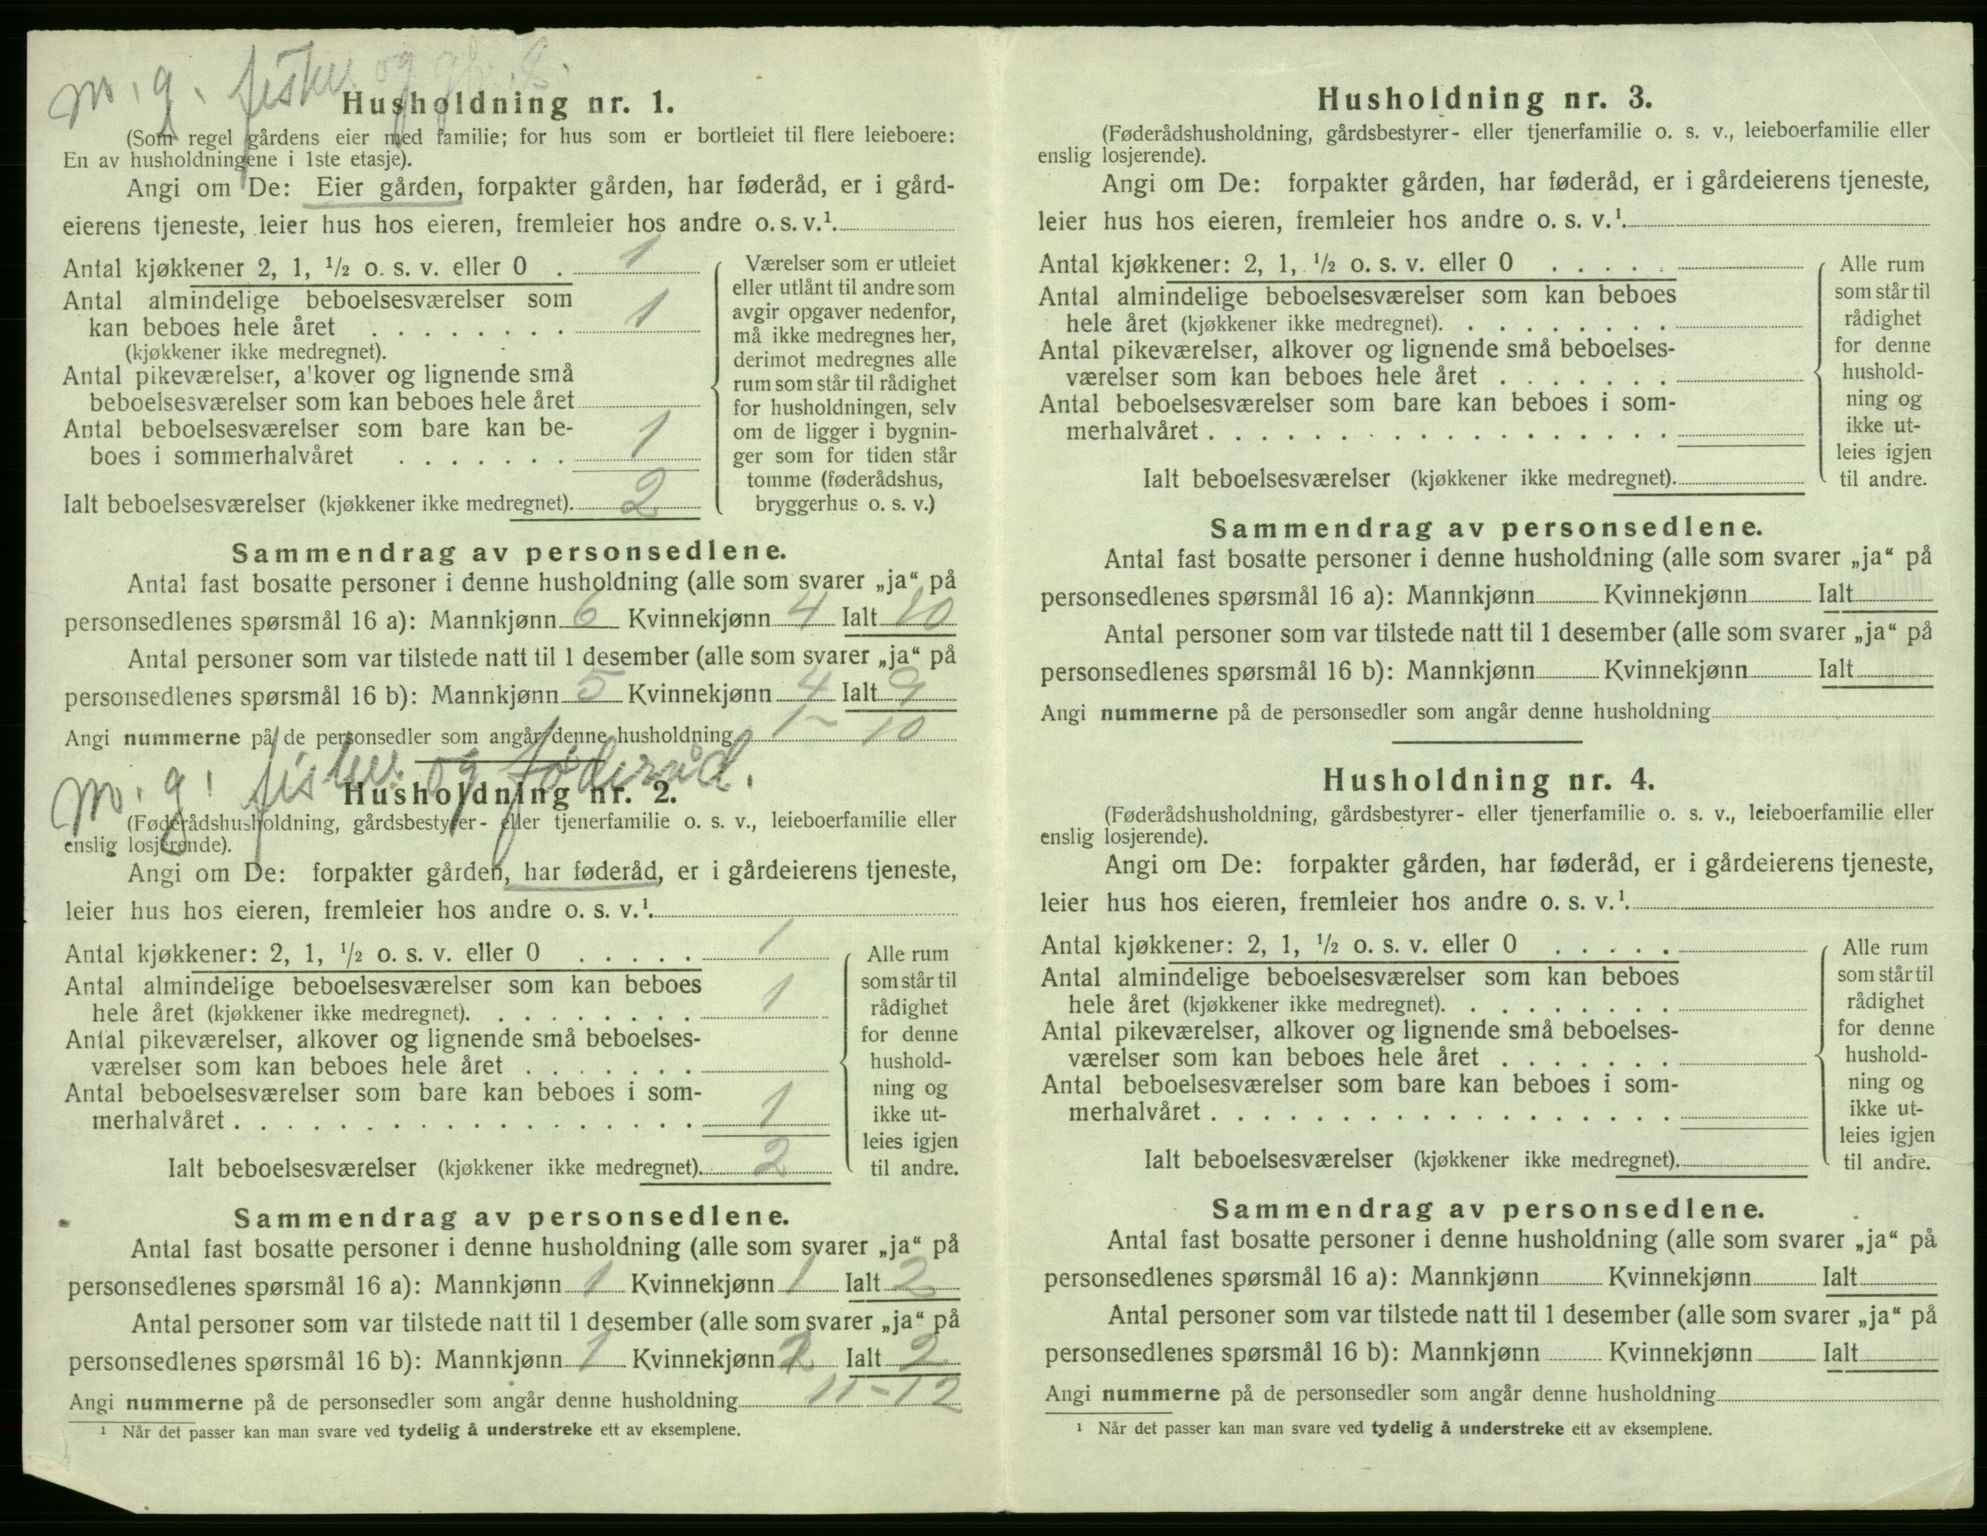 m. g. fisker og gbr. S.
Husholdning nr. 1.
(Som regel gårdens eier med familie; for hus som er bortleiet til flere leieboere:
En av husholdningene i 1ste etasje).
Angi om De: Eier gården, forpakter gården, har føderåd, er i gård-
eierens tjeneste, leier hus hos eieren, fremleier hos andre o. s. v.¹
Antal kjøkkener 2, 1, ½ o. s. v. eller 0 . 1
Antal almindelige beboelsesværelser som
kan beboes hele året . . . . . . . . 1
(kjøkkener ikke medregnet).
Antal pikeværelser, a'kover og lignende små
beboelsesværelser som kan beboes hele året
Antal beboelsesværelser som bare kan be-
boes i sommerhalvåret . . . . . . . 1
Ialt beboelsesværelser (kjøkkener ikke medregnet). 2
Værelser som er utleiet
eller utlånt til andre som
avgir opgaver nedenfor,
må ikke medregnes her,
derimot medregnes alle
rum som står til rådighet
for husholdningen, selv
om de ligger i bygnin-
ger som for tiden står
tomme (føderådshus,
bryggerhus o. s. v.)
Sammendrag av personsedlene.
Antal fast bosatte personer i denne husholdning (alle som svarer „ja“ på
personsedlenes spørsmål 16 a): Mannkjønn 6 Kvinnekjønn 4 Ialt 10
Antal personer som var tilstede natt til 1 desember (alle som svarer „ja“ på
personsedlenes spørsmål 16 b): Mannkjønn 5 Kvinnekjønn 4 Ialt 9
Angi nummerne på de personsedler som angår denne husholdning 1 – 10
m. g. fisker og føderåd.
Husholdning nr. 2.
(Føderådshusholdning, gårdsbestyrer- eller tjenerfamilie o. s. v., leieboerfamilie eller
enslig losjerende).
Angi om De: forpakter gården, har føderåd, er i gårdeierens tjeneste,
leier hus hos eieren, fremleier hos andre o. s. v.¹
Antal kjøkkener: 2, 1, ½ o. s. v. eller 0 . . . . . 1
Antal almindelige beboelsesværelser som kan beboes
hele året (kjøkkener ikke medregnet). . . . . . . . . 1
Antal pikeværelser, alkover og lignende små beboelses-
værelser som kan beboes hele året . . . . . . .
Antal beboelsesværelser som bare kan beboes i som-
merhalvåret . . . . . . . . . . . . . . . . . . 1
Ialt beboelsesværelser (kjøkkener ikke medregnet). 2
Alle rum
som står til
rådighet
for denne
hushold-
ning og
ikke ut-
leies igjen
til andre.
Sammendrag av personsedlene.
Antal fast bosatte personer i denne husholdning (alle som svarer „ja“ på
personsedlenes spørsmål 16 a): Mannkjønn 1 Kvinnekjønn 1 Ialt 2
Antal personer som var tilstede natt til 1 desember (alle som svarer „ja“ på
personsedlenes spørsmål 16 b): Mannkjønn 1 Kvinnekjønn Ialt 2
Angi nummerne på de personsedler som angår denne husholdning 11 – 12
¹ Når det passer kan man svare ved tydelig å understreke ett av eksemplene.
Husholdning nr. 3.
(Føderådshusholdning, gårdsbestyrer- eller tjenerfamilie o. s. v., leieboerfamilie eller
enslig losjerende).
Angi om De: forpakter gården, har føderåd, er i gårdeierens tjeneste,
leier hus hos eieren, fremleier hos andre o. s. v.¹
Antal kjøkkener: 2, 1, ½ o. s. v. eller 0 . . . . .
Antal almindelige beboelsesværelser som kan beboes
hele året (kjøkkener ikke medregnet). . . . . . . . .
Antal pikeværelser, alkover og lignende små beboelses-
værelser som kan beboes hele året . . . . . . .
Antal beboelsesværelser som bare kan beboes i som-
merhalvåret . . . . . . . . . . . . . . . . . .
Ialt beboelsesværelser (kjøkkener ikke medregnet).
Alle rum
som står til
rådighet
for denne
hushold-
ning og
ikke ut-
leies igjen
til andre.
Sammendrag av personsedlene.
Antal fast bosatte personer i denne husholdning (alle som svarer „ja“ på
personsedlenes spørsmål 16 a): Mannkjønn Kvinnekjønn Ialt
Antal personer som var tilstede natt til 1 desember (alle som svarer „ja“ på
personsedlenes spørsmål 16 b): Mannkjønn Kvinnekjønn Ialt
Angi nummerne på de personsedler som angår denne husholdning
Husholdning nr. 4.
(Føderådshusholdning, gårdsbestyrer- eller tjenerfamilie o. s. v., leieboerfamilie eller
enslig losjerende).
Angi om De: forpakter gården, har føderåd, er i gårdeierens tjeneste,
leier hus hos eieren, fremleier hos andre o. s. v.¹
Antal kjøkkener: 2, 1, ½ o. s. v. eller 0 . . . . .
Antal almindelige beboelsesværelser som kan beboes
hele året (kjøkkener ikke medregnet). . . . . . . . .
Antal pikeværelser, alkover og lignende små beboelses-
værelser som kan beboes hele året . . . . . . .
Antal beboelsesværelser som bare kan beboes i som-
merhalvåret . . . . . . . . . . . . . . . . . .
Ialt beboelsesværelser (kjøkkener ikke medregnet).
Alle rum
som står til
rådighet
for denne
hushold-
ning og
ikke ut-
leies igjen
til andre.
Sammendrag av personsedlene.
Antal fast bosatte personer i denne husholdning (alle som svarer „ja“ på
personsedlenes spørsmål 16 a): Mannkjønn Kvinnekjønn Ialt
Antal personer som var tilstede natt til 1 desember (alle som svarer „ja“ på
personsedlenes spørsmål 16 b): Mannkjønn Kvinnekjønn Ialt
Angi nummerne på de personsedler som angår denne husholdning
¹ Når det passer kan man svare ved tydelig å understreke ett av eksemplene.